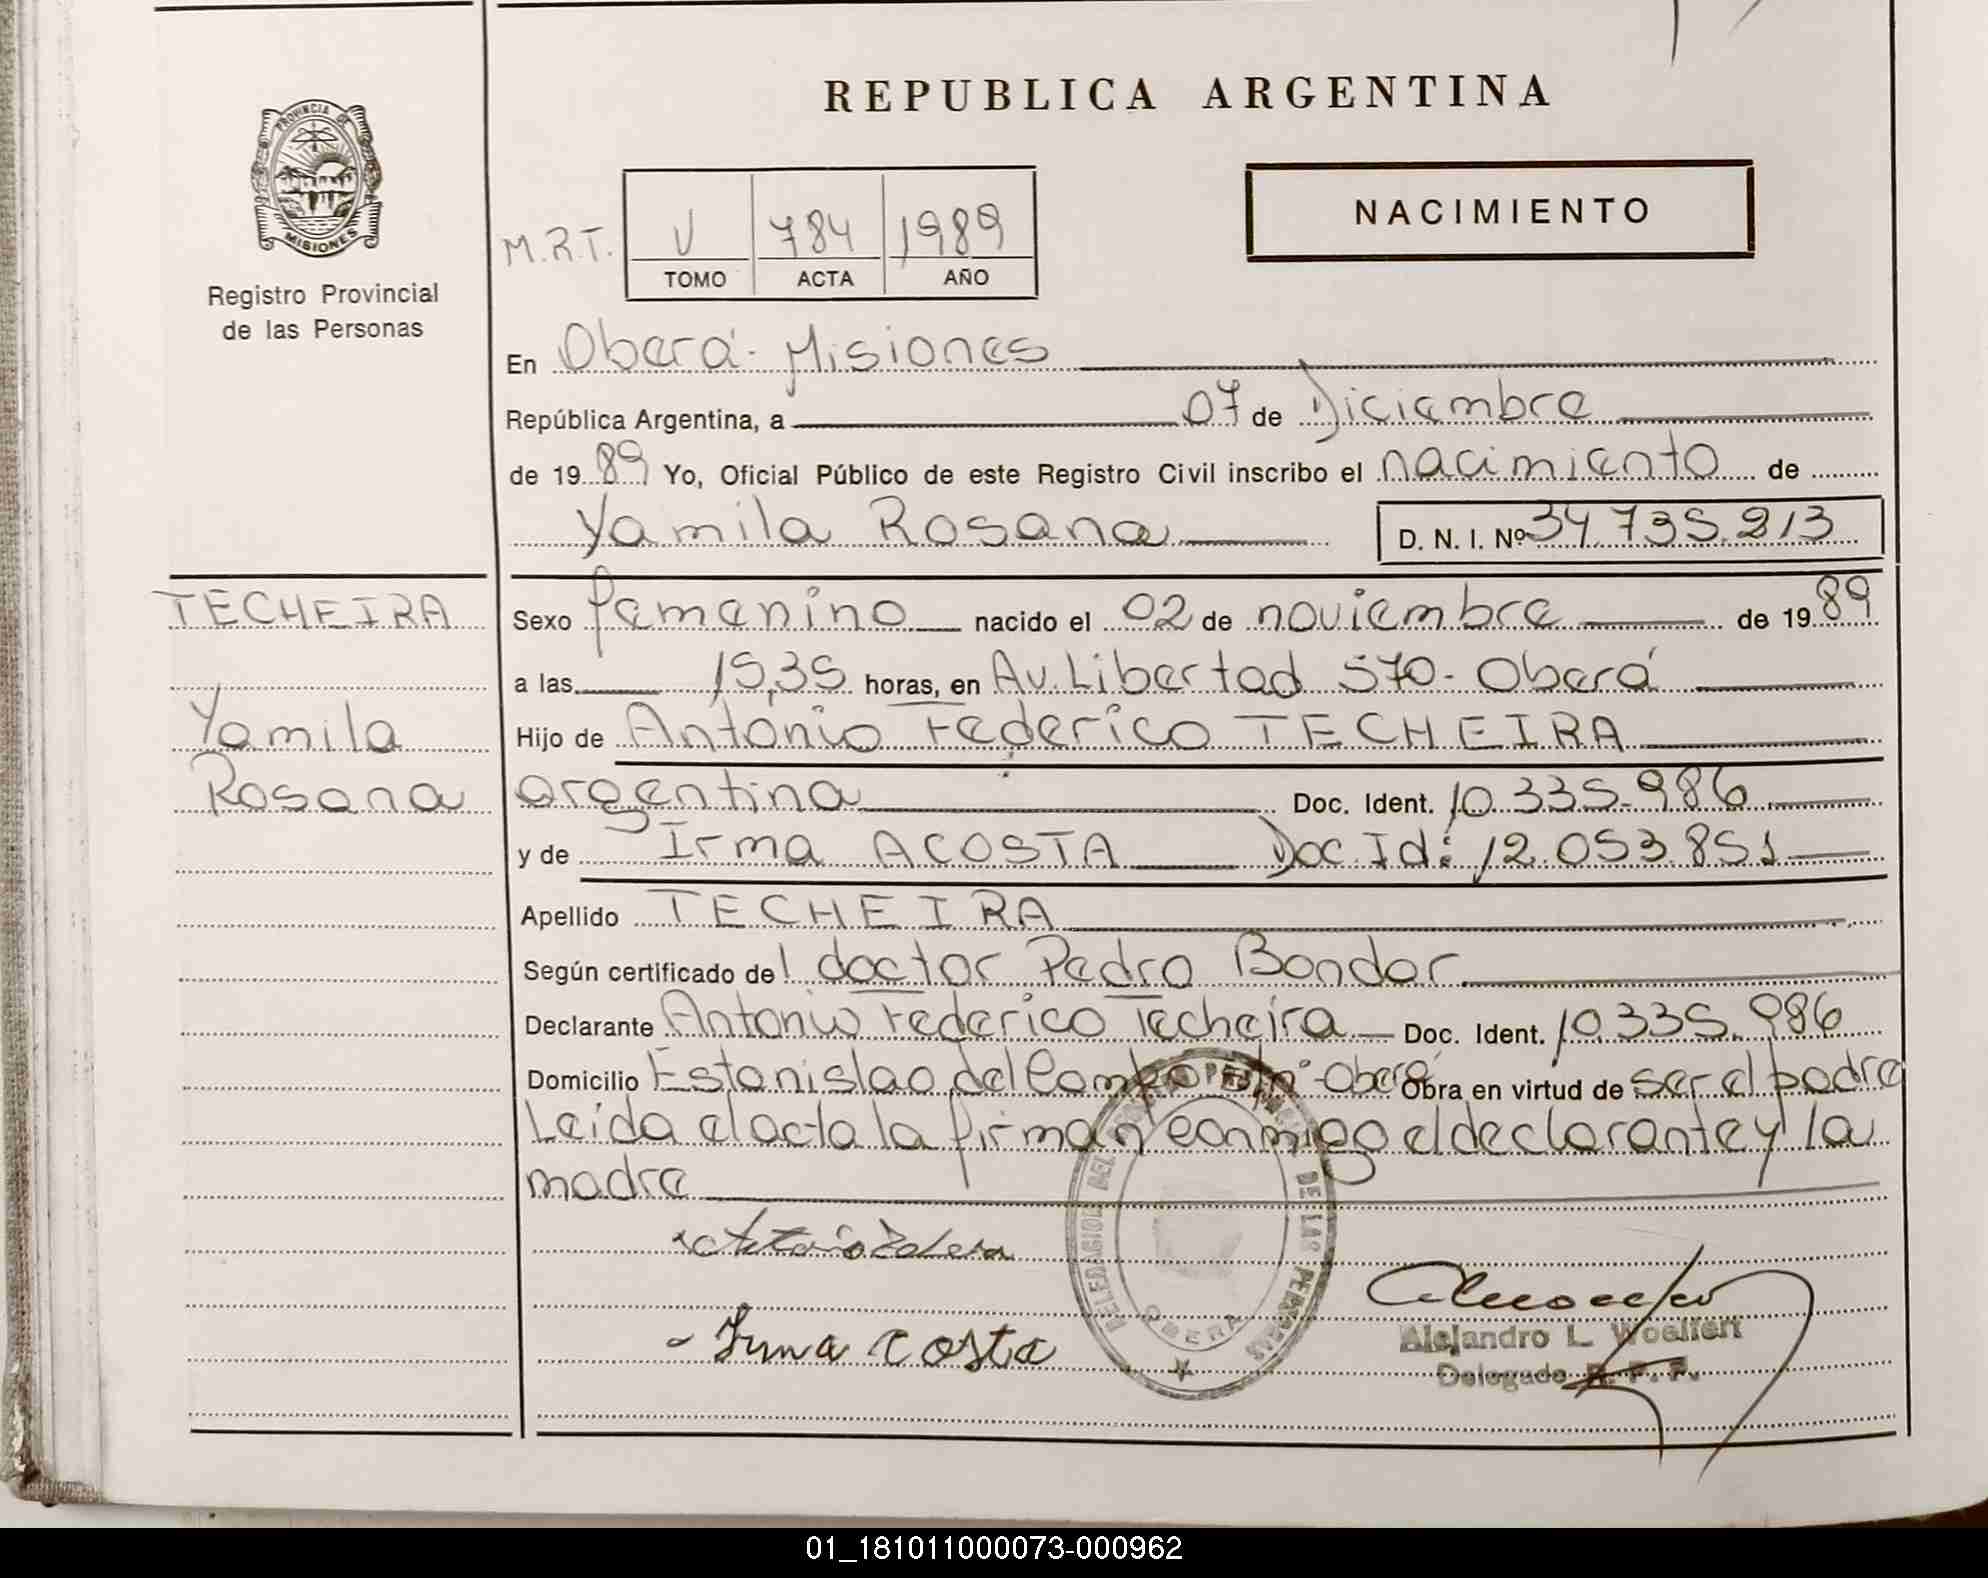 REPUBLICA ARGENTINA
PROVINCIA DE
MISIONES
Registro Provincial
de las Personas
NACIMIENTO
M.R.T. V 784 1989
TOMO ACTA AÑO
En Oberá - Misiones
República Argentina, a 07 de Diciembre
de 1989 Yo, Oficial Público de este Registro Civil inscribo el nacimiento de
Yamila Rosana D. N. I. Nº 34.735.213
TECHEIRA
Yamila
Rosana
Sexo femenino nacido el 02 de noviembre de 1989
a las 15,35 horas, en Av. Libertad 570 - Oberá
Hijo de Antonio Federico TECHEIRA
argentina Doc. Ident. 10.335.986
y de Irma ACOSTA Doc Id: 12.053.851
Apellido TECHEIRA
Según certificado del doctor Pedro Bondar
Declarante Antonio Federico Techeira Doc. Ident. 10.335.986
Domicilio Estanislao del Campo - Oberá Obra en virtud de ser el padre
Leída el acta la firman conmigo el declarante y la
madre
DELEGACION DEL DE LAS PERSONAS
OBERA
Irma Costa
Alejandro L.
Delegado R. P. P.
01_181011000073-000962